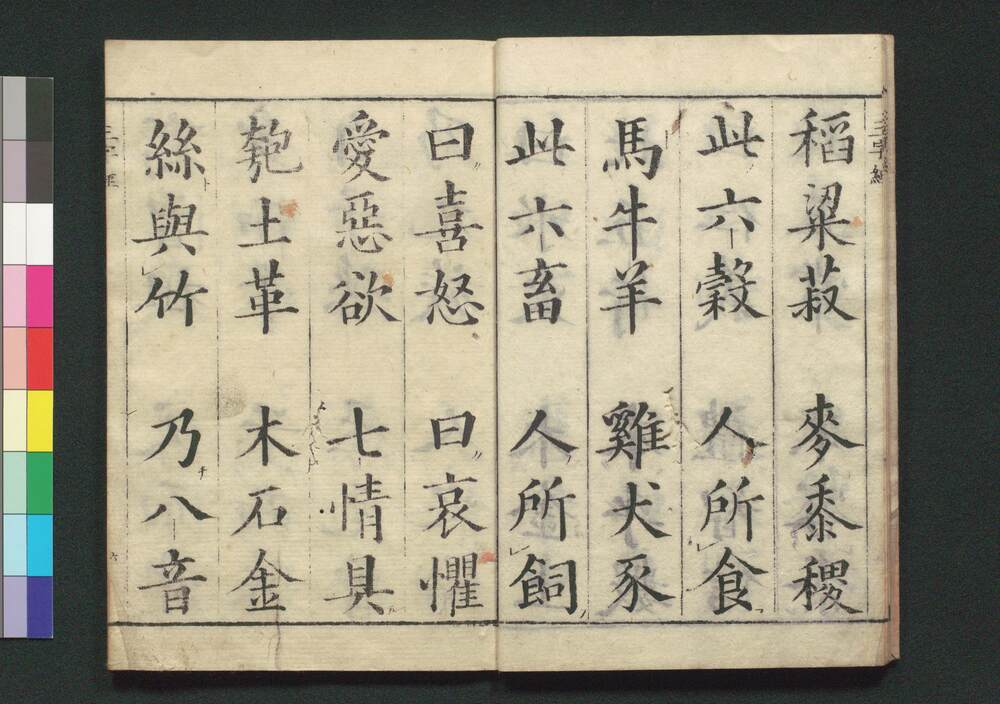 三字經
稻粱菽 麥黍稷
此六穀 人所食
馬牛羊 雞犬豕
此六畜 人所飼
曰喜怒 曰哀懼
愛惡欲 七情具
匏土革 木石金
絲與竹 乃八音
六